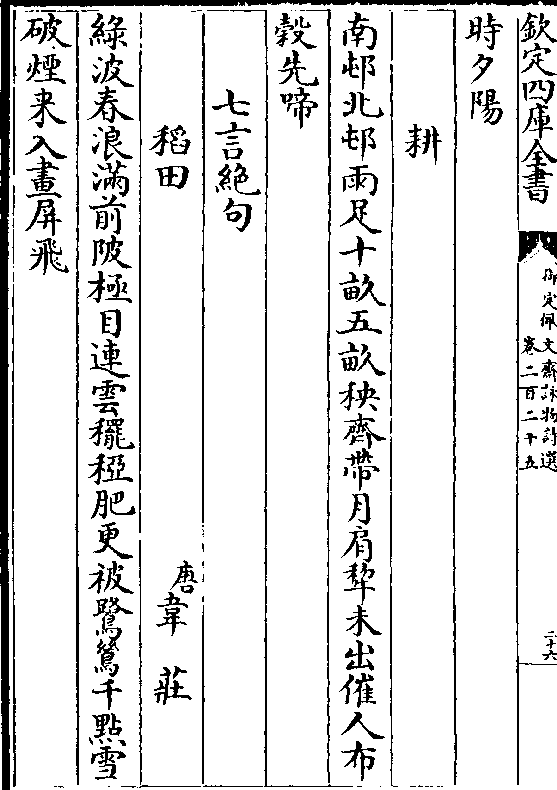 欽定四庫全書
御定佩文齋詠物詩選
卷二百二十五
二十六
時夕陽
耕
南邨北邨雨足十畝五畝秧齊帶月肩犂未出催人布
穀先啼
七言絶句
稻田
唐韋莊
綠波春浪滿前陂極目連雲䆉稏肥更被鷺鷥千點雪
破煙来入畫屏飛